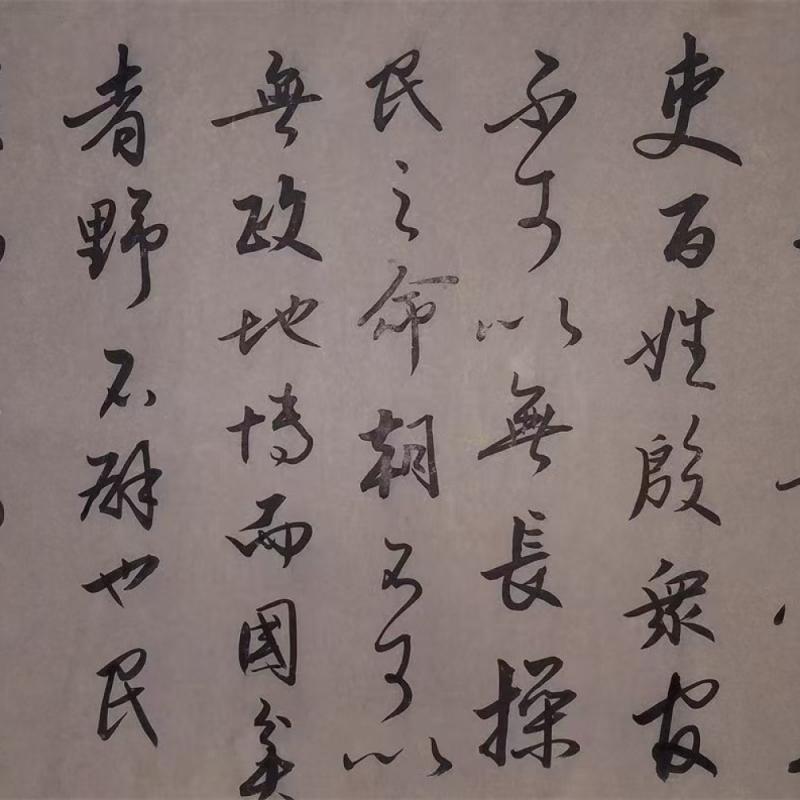 吏百姓殷眾官
不可以無長操
民之命朝不可以
無政地博而國貧
者野不辟也民